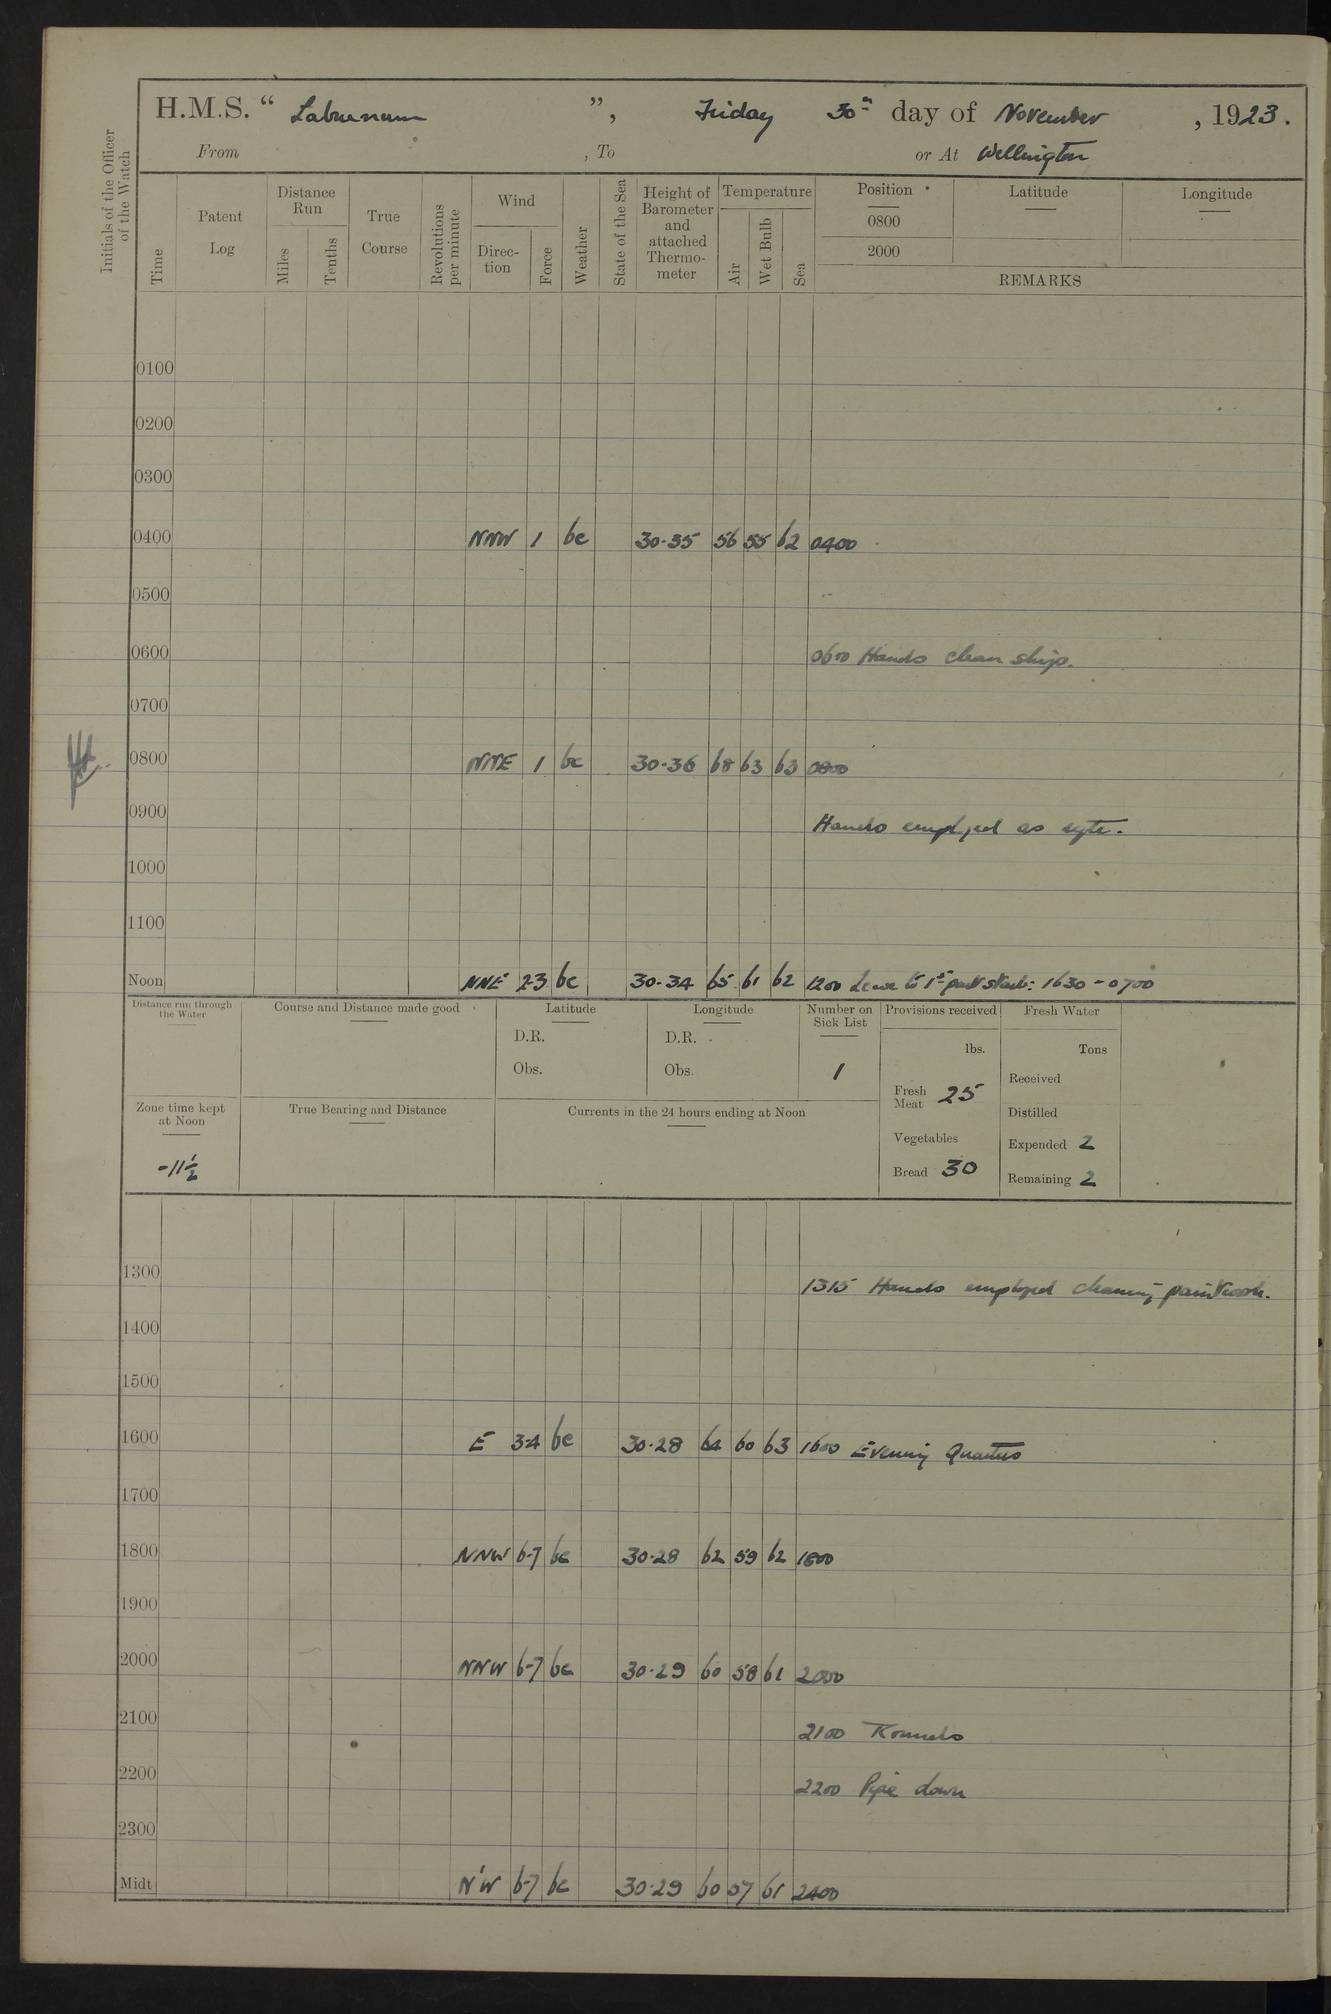 H.M.S. “ Laburnum ”, Friday 30th day of November , 1923.
From , To or At Wellington
Initials of the Officer of the Watch
Time
Patent Log
Distance Run
Miles
Tenths
True Course
Revolutions per minute
Wind
Direc-tion
Force
Weather
State of the Sea
Height of Barometer and attached Thermo-meter
Temperature
Air
Wet Bulb
Sea
Position
Latitude
Longitude
0800
2000
REMARKS
0100
0200
0300
0400 NNW 1 bc 30.35 56 55 62 0400
0500
0600 0600 Hands clean ship.
0700
0800 NNE 1 bc 30.36 68 63 63 0800
0900 Hands employed as
1000
1100
Noon NNE 2-3 bc 30.34 65 61 62 1200 Leave to 1st part Starb: 1630 - 0700
Distance run through the Water
Course and Distance made good
Latitude
D.R.
Obs.
Longitude
D.R.
Obs.
Number on Sick List
1
Provisions received
lbs.
Fresh Meat 25
Vegetables
Bread 30
Fresh Water
Tons
Received
Distilled
Expended 2
Remaining 2
Zone time kept at Noon
-11½
True Bearing and Distance
Currents in the 24 hours ending at Noon
1300 1315 Hands employed cleaning paintwork.
1400
1500
1600 E 3-4 bc 30.28 64 60 63 1600 Evening Quarters
1700
1800 NNW 6-7 bc 30.28 62 59 62 1800
1900
2000 NNW 6-7 bc 30.29 60 58 61 2000
2100 2100 Rounds
2200 2200 Pipe down
2300
Midt N'W 6-7 bc 30.29 60 57 61 2400